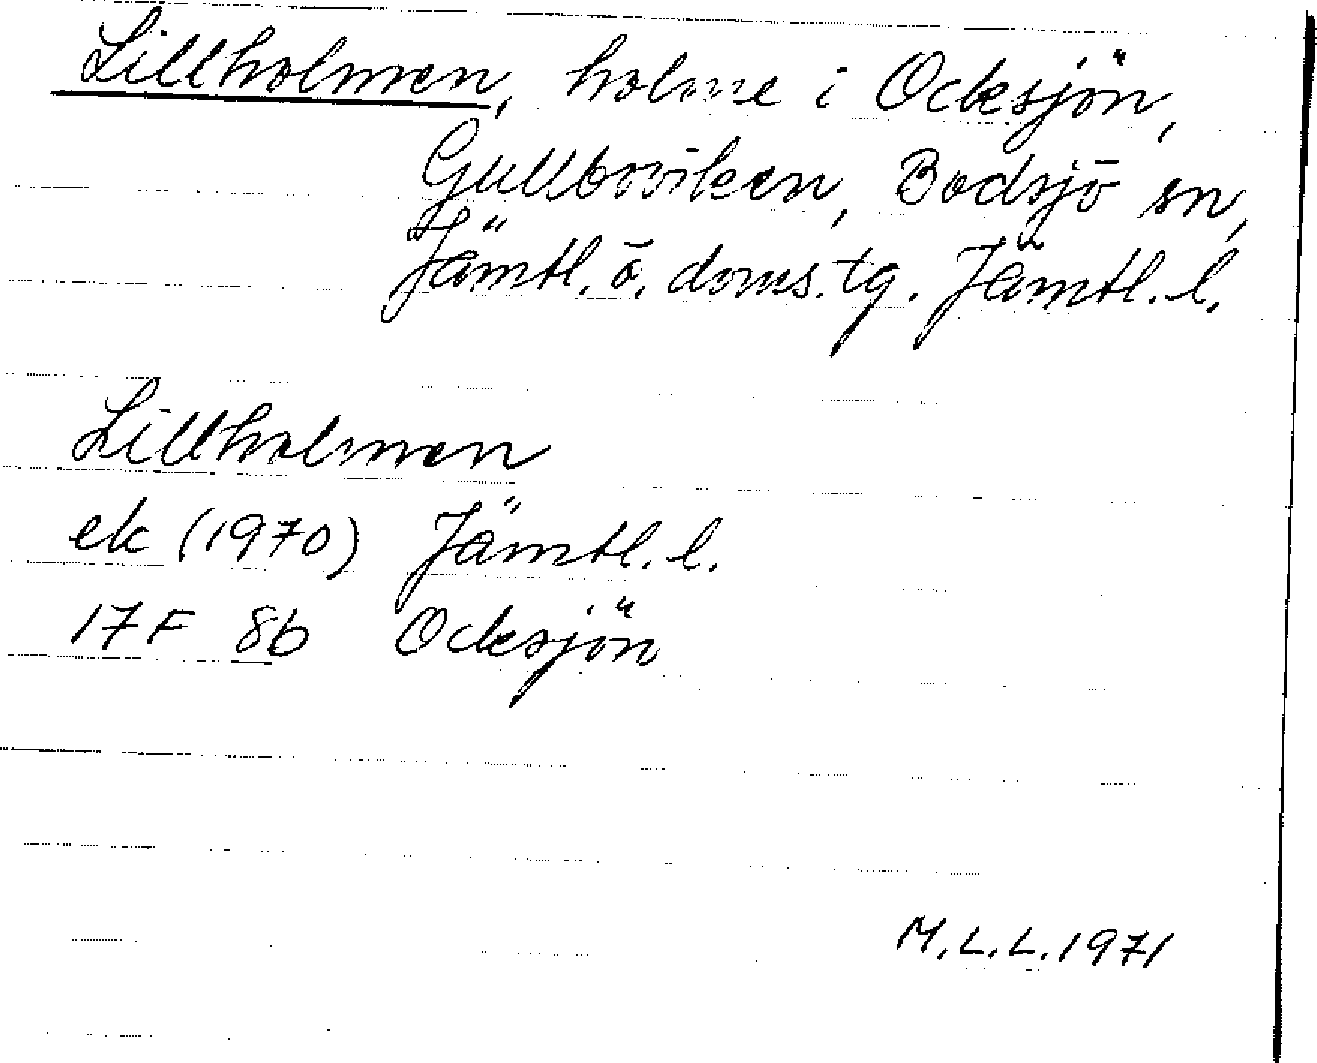 Lillholmen, holme i Ocksjön,
Gullboviken, Bodsjö sn,
Jämtl. ö. doms. tg. Jämtl. l.
Lillholmen
ek (1970) Jämtl. l.
17F 8b Ocksjön
M.L.L. 1971